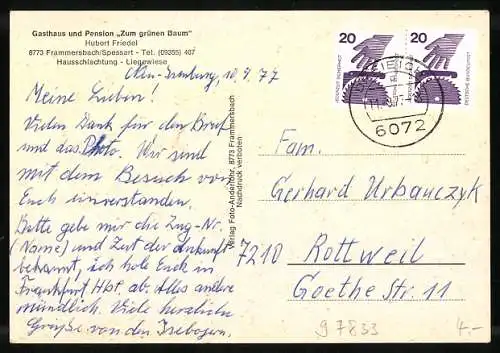 Gasthaus und Pension „Zum grünen Baum"
Hubert Friedel
8773 Frammersbach/Spessart - Tel. (09355) 407
Hausschlachtung - Liegewiese
Neu-Isenburg, 10.9.77
Meine Lieben!
Vielen Dank für den Brief
und das Photo. Wir sind
mit dem Besuch von
Euch einverstanden.
Bitte gebt mir die Zug-Nr.
(Name) und Zeit der Ankunft
bekannt, ich hole Euch in
Frankfurt Hbf. ab. Alles andere
mündlich. Viele herzliche
Grüße von den Isebogern.
Verlag Foto-Anderlohr, 8773 Frammersbach
Nachdruck verboten
20
20
DEUTSCHE BUNDESPOST
6072
Fam.
Gerhard Urbauczyk
7210 Rottweil
Goethe Str. 11
97833
4.-